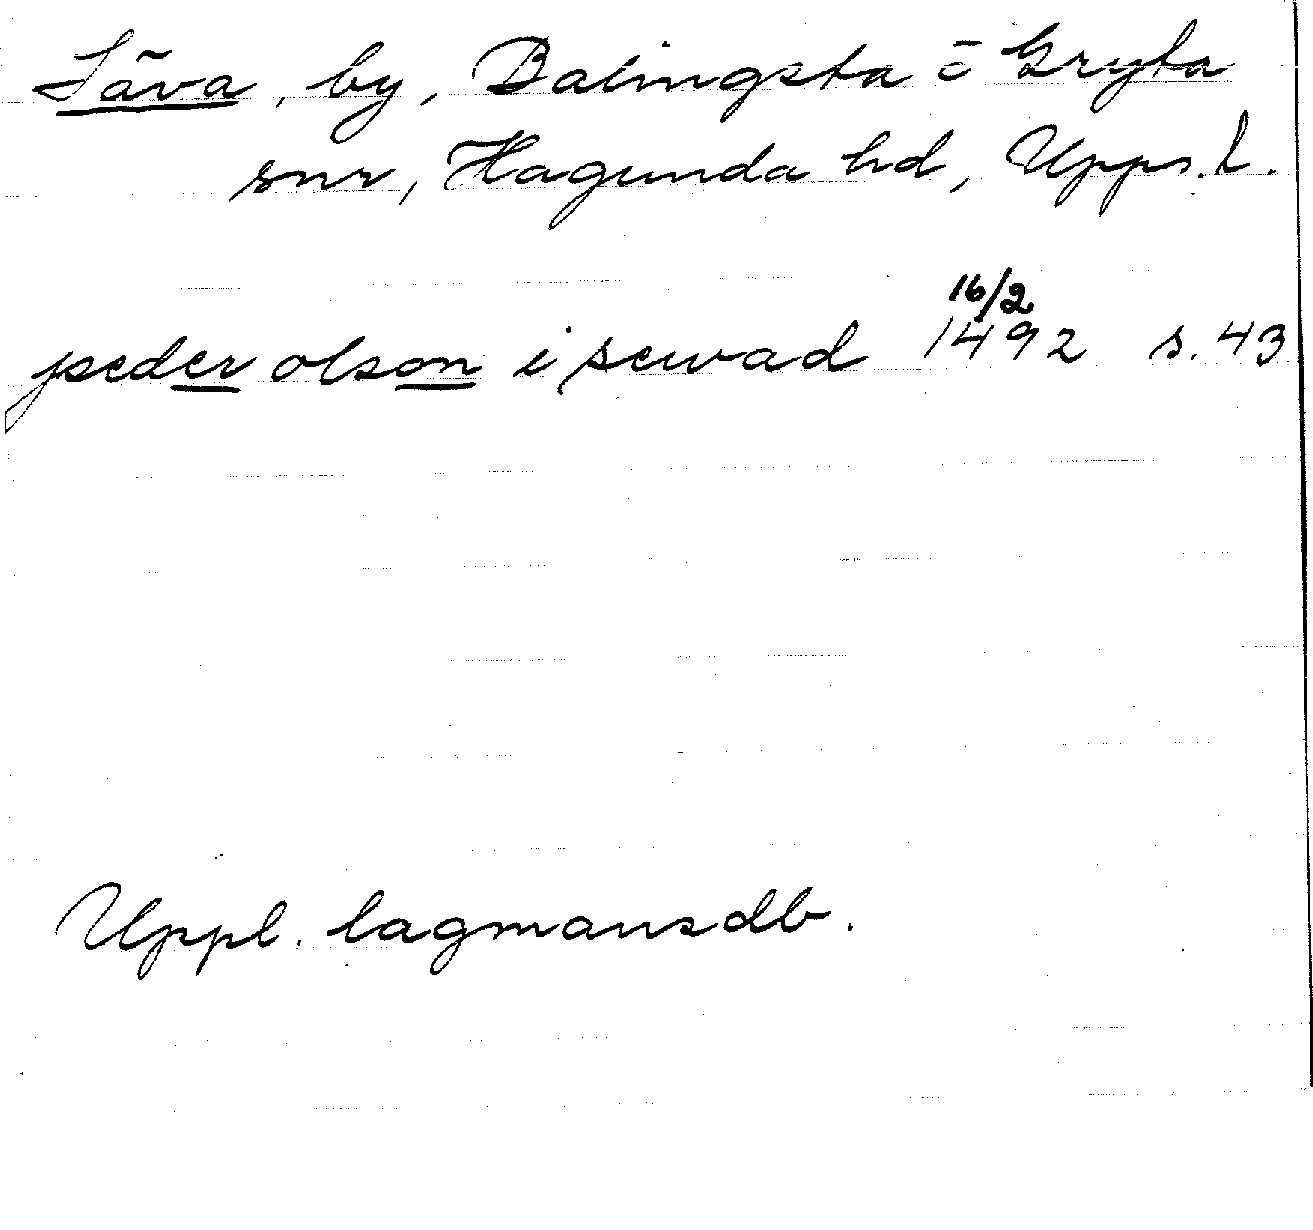 Säva, by, Balingsta o Gryta
snr, Hagunda hd, Upps. l.
16/2
peder olson i sewad 1492 s. 43
Uppl. lagmansdb.